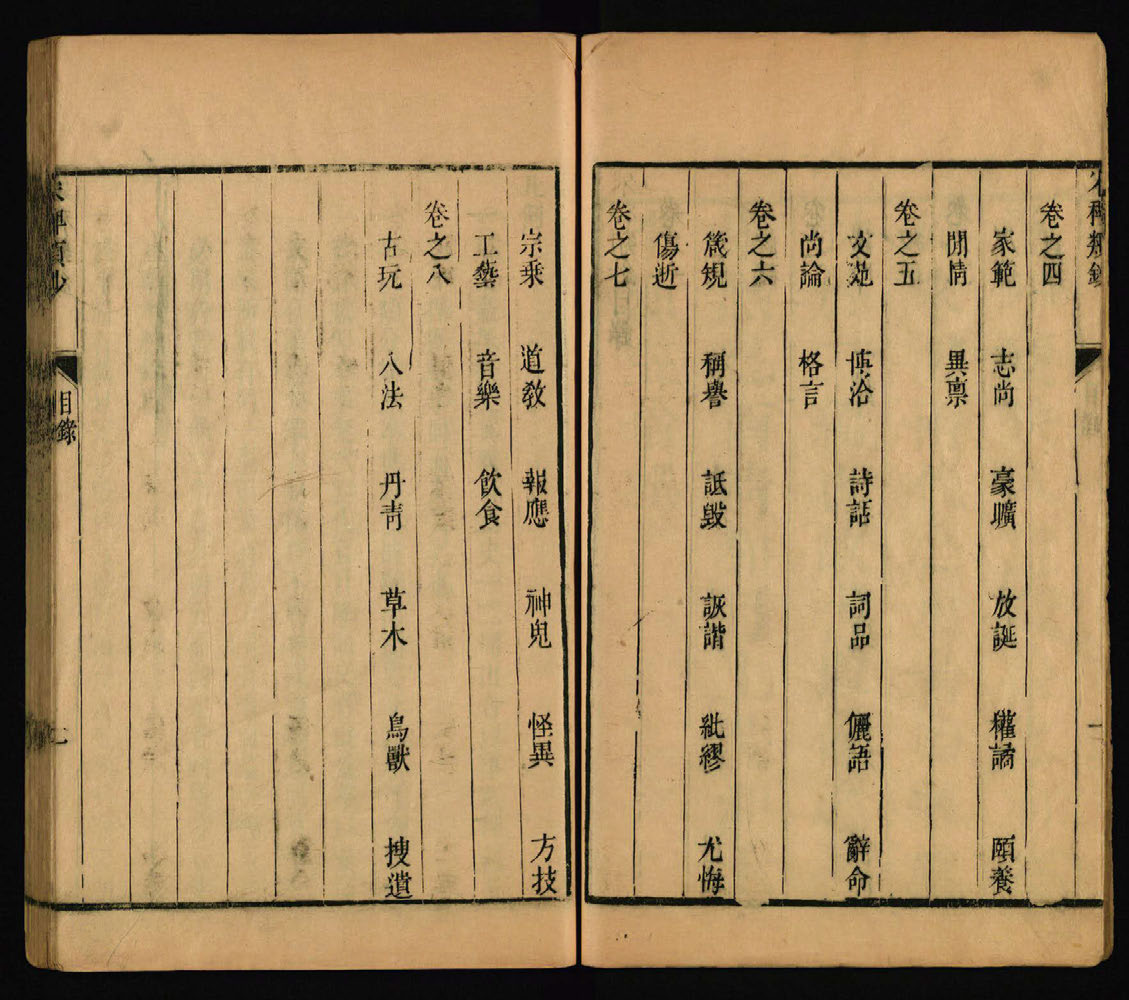 宋稗類鈔
卷之四
家範 志尚 豪曠 放誕 權譎 頤養
閒情 異稟
卷之五
文苑 博洽 詩話 詞品 儷語 辭命
尚論 格言
卷之六
箴規 稱譽 詆毀 詼諧 紕繆 尤悔
傷逝
卷之七
宗乘 道教 報應 神鬼 怪異 方技
工藝 音樂 飲食
卷之八
古玩 八法 丹青 草木 鳥獸 搜遺
宋稗類鈔
目錄
七